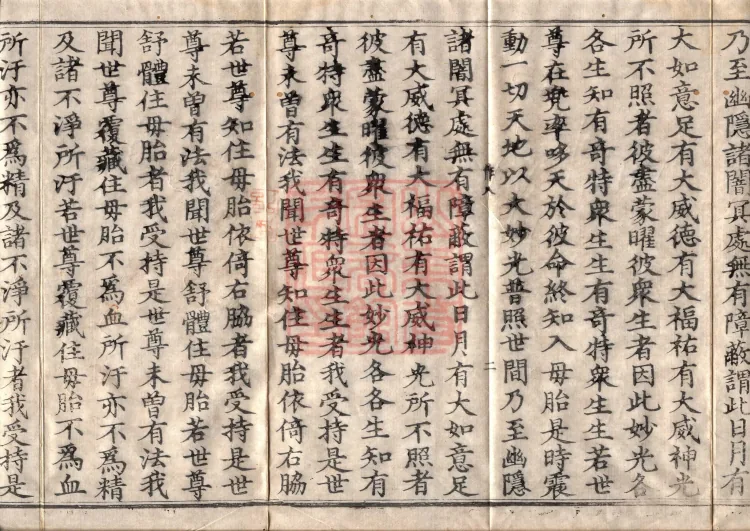 乃至幽隱諸闇冥處無有障蔽謂此日月有
大如意足有大威德有大福祐有大威神光
所不照者彼盡蒙曜彼衆生者因此妙光各
各生知有奇特衆生生有奇特衆生生若世
尊在兜率哆天於彼命終知入母胎是時震
動一切天地以大妙光普照世間乃至幽隱
諸闇冥處無有障蔽謂此日月有大如意足
有大威德有大福祐有大威神光所不照者
彼盡蒙曜彼衆生者因此妙光各各生知有
奇特衆生生有奇特衆生生者我受持是世
尊未曾有法我聞世尊知住母胎依倚右脇
若世尊知住母胎依倚右脇者我受持是世
尊未曾有法我聞世尊舒體住母胎若世尊
舒體住母胎者我受持是世尊未曾有法我
聞世尊覆藏住母胎不爲血所汙亦不爲精
及諸不淨所汙若世尊覆藏住母胎不爲血
所汙亦不爲精及諸不淨所汙者我受持是